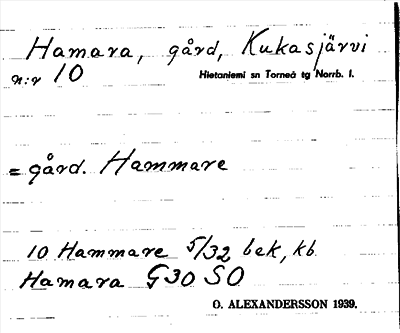 Hamara, gård, Kukasjärvi
n:r 10 Hietaniemi sn Torneå tg Norrb. l.
= gård. Hammare
10 Hammare 5/32 bek, kb.
Hamara G30 SO
O. ALEXANDERSSON 1939.